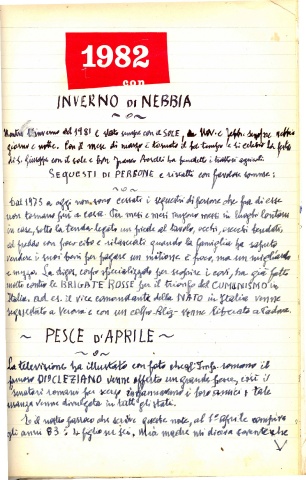 1982
con
INVERNO DI NEBBIA
Mentre l'inverno del 1981 è stato sempre con il SOLE, da Nov. e Febb. sempre nebbia
giorno e notte. Con il mese di marzo è tornato il bel tempo e si celebrò la festa
di S. Giuseppe con il sole e Don Franco ha benedetti i trattori agricoli.
SEQUESTI DI PERSONE e riscatti con forti somme:
Dal 1975 a oggi non sono cessati i sequestri di persone che fra di esse
non tornano più a casa. Per mesi e mesi tengono messi in luoghi lontani
in case, sotto la tenda legati un piede al tavolo, occhi, orecchi bendati,
al freddo con poco cibo e rilasciati quando la famiglia ha saputo
vendere i suoi beni per pagare un milione è poco, ma un miliardo
e mezzo. La digos, corpo specializzato per scoprire i covi, ha già fatto
molto contro le BRIGATE ROSSE per il trionfo del COMUNISMO in
Italia. ad es. il vice comandante della NATO in Italia venne
sequestrato a Verona e con un colpo Bliz venne liberato a Padova.
~ PESCE D'APRILE ~
La televisione ha illustrato con foto che gli Imp. romano il
famoso DIOCLEZIANO venne offerto un grande pesce, così i
senatori romani per scherzo ingannavano i loro amici e tale
usanza venne divulgata in tutti gli stati.
E il nostro parroco che scrive queste note, al 1° aprile compiva
gli anni 83: 4 figlio ne sei. Mia madre mi diceva sovente che